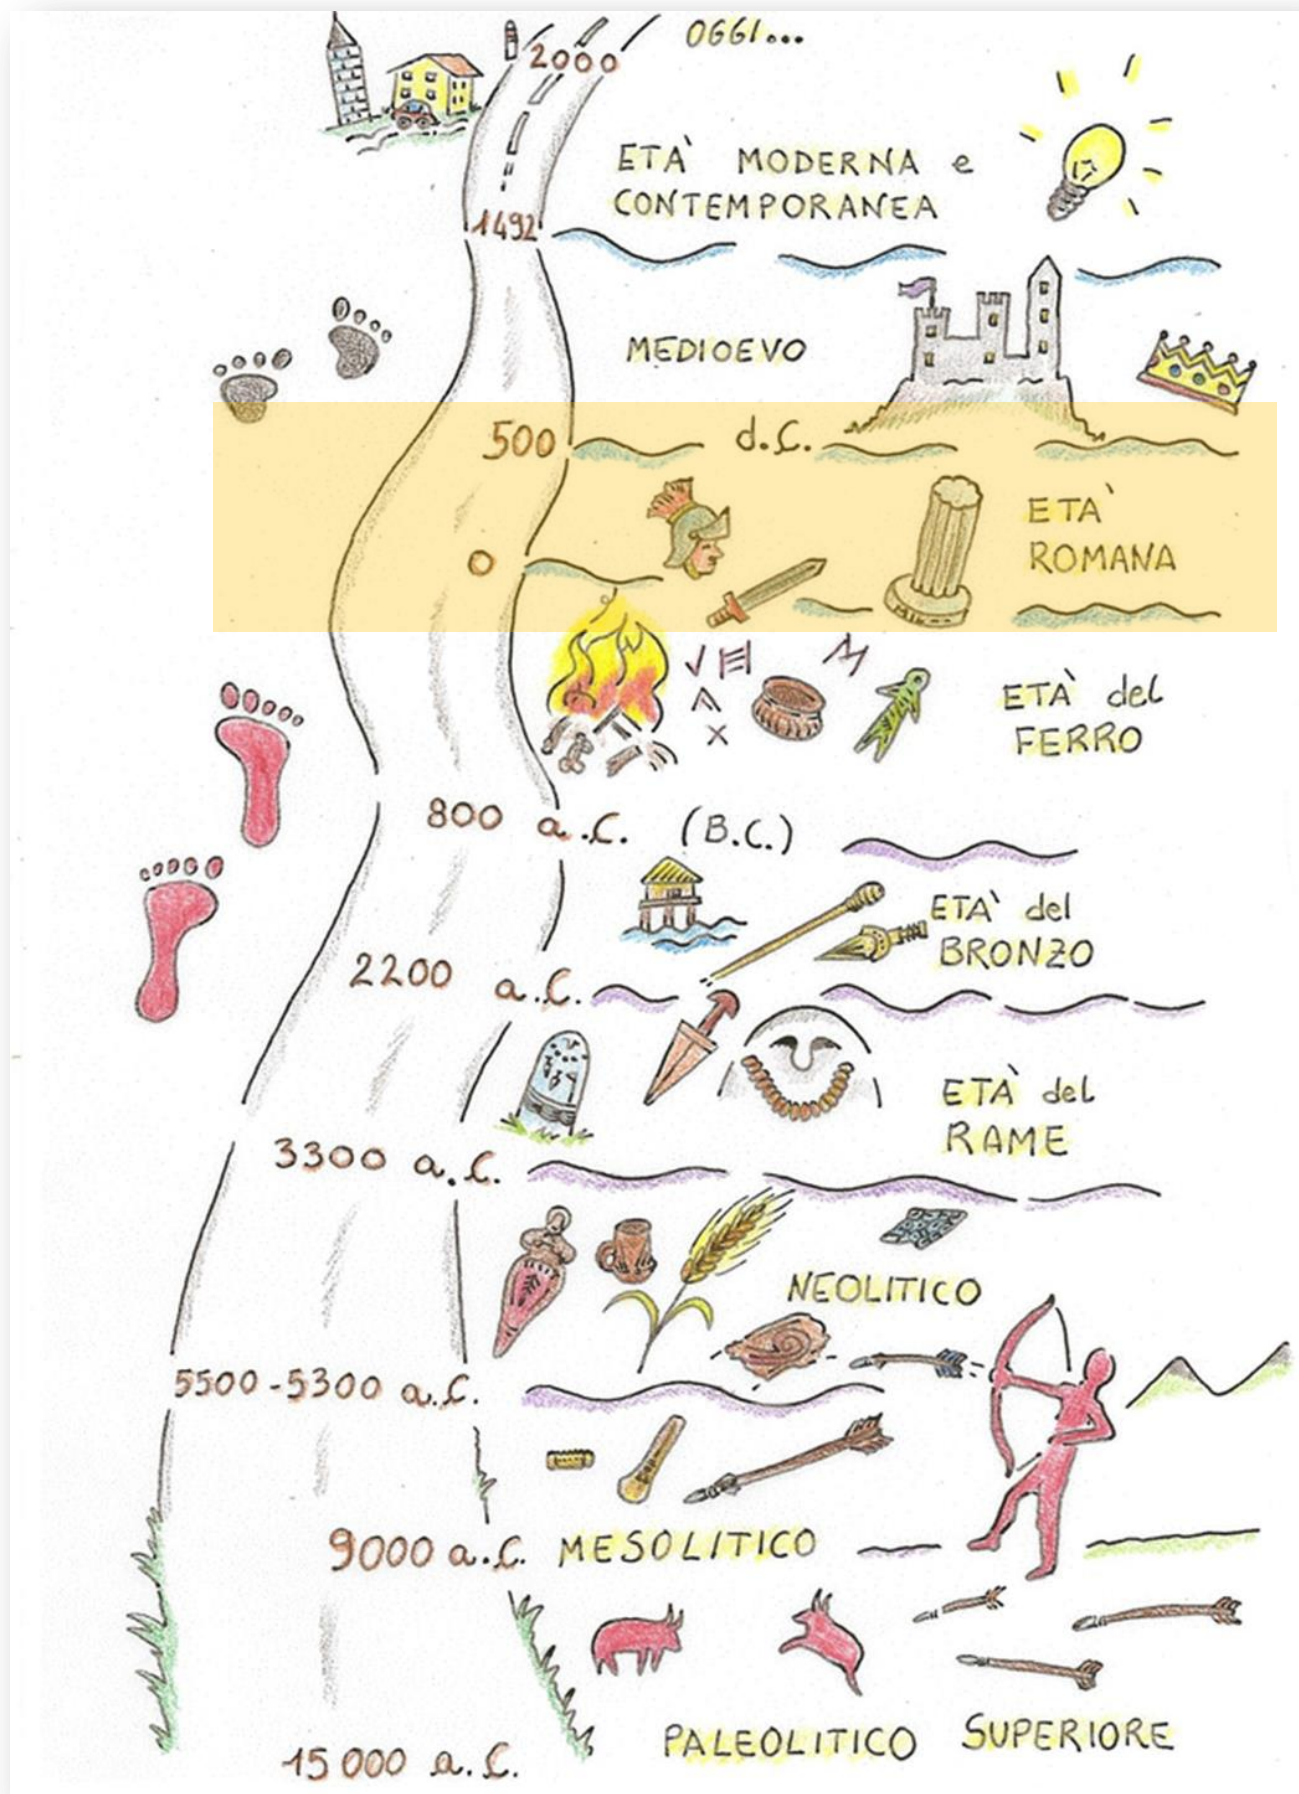 OGGI...
2000
ETÀ MODERNA e
CONTEMPORANEA
1492
MEDIOEVO
500 d.C.
ETÀ
ROMANA
0
ETÀ del
FERRO
800 a.C. (B.C.)
ETÀ del
BRONZO
2200 a.C.
ETÀ del
RAME
3300 a.C.
NEOLITICO
5500-5300 a.C.
9000 a.C. MESOLITICO
PALEOLITICO SUPERIORE
15000 a.C.